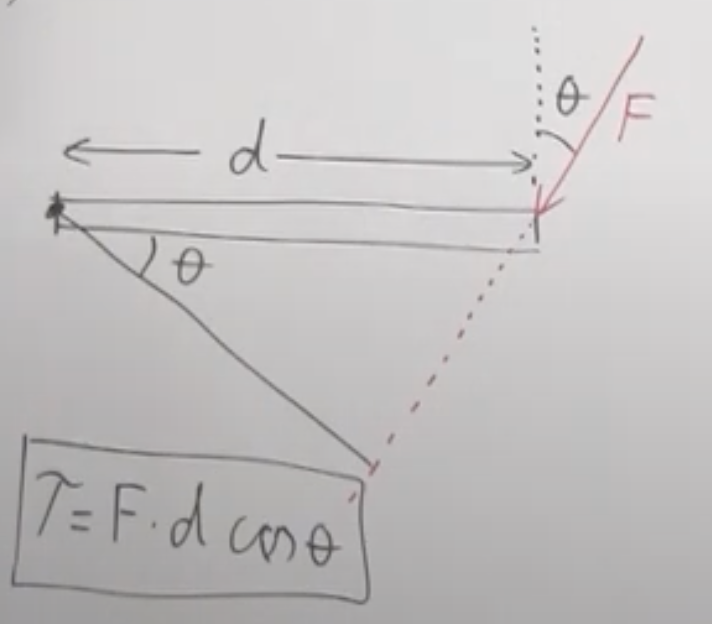 θ
F
d
θ
τ = F · d cos θ